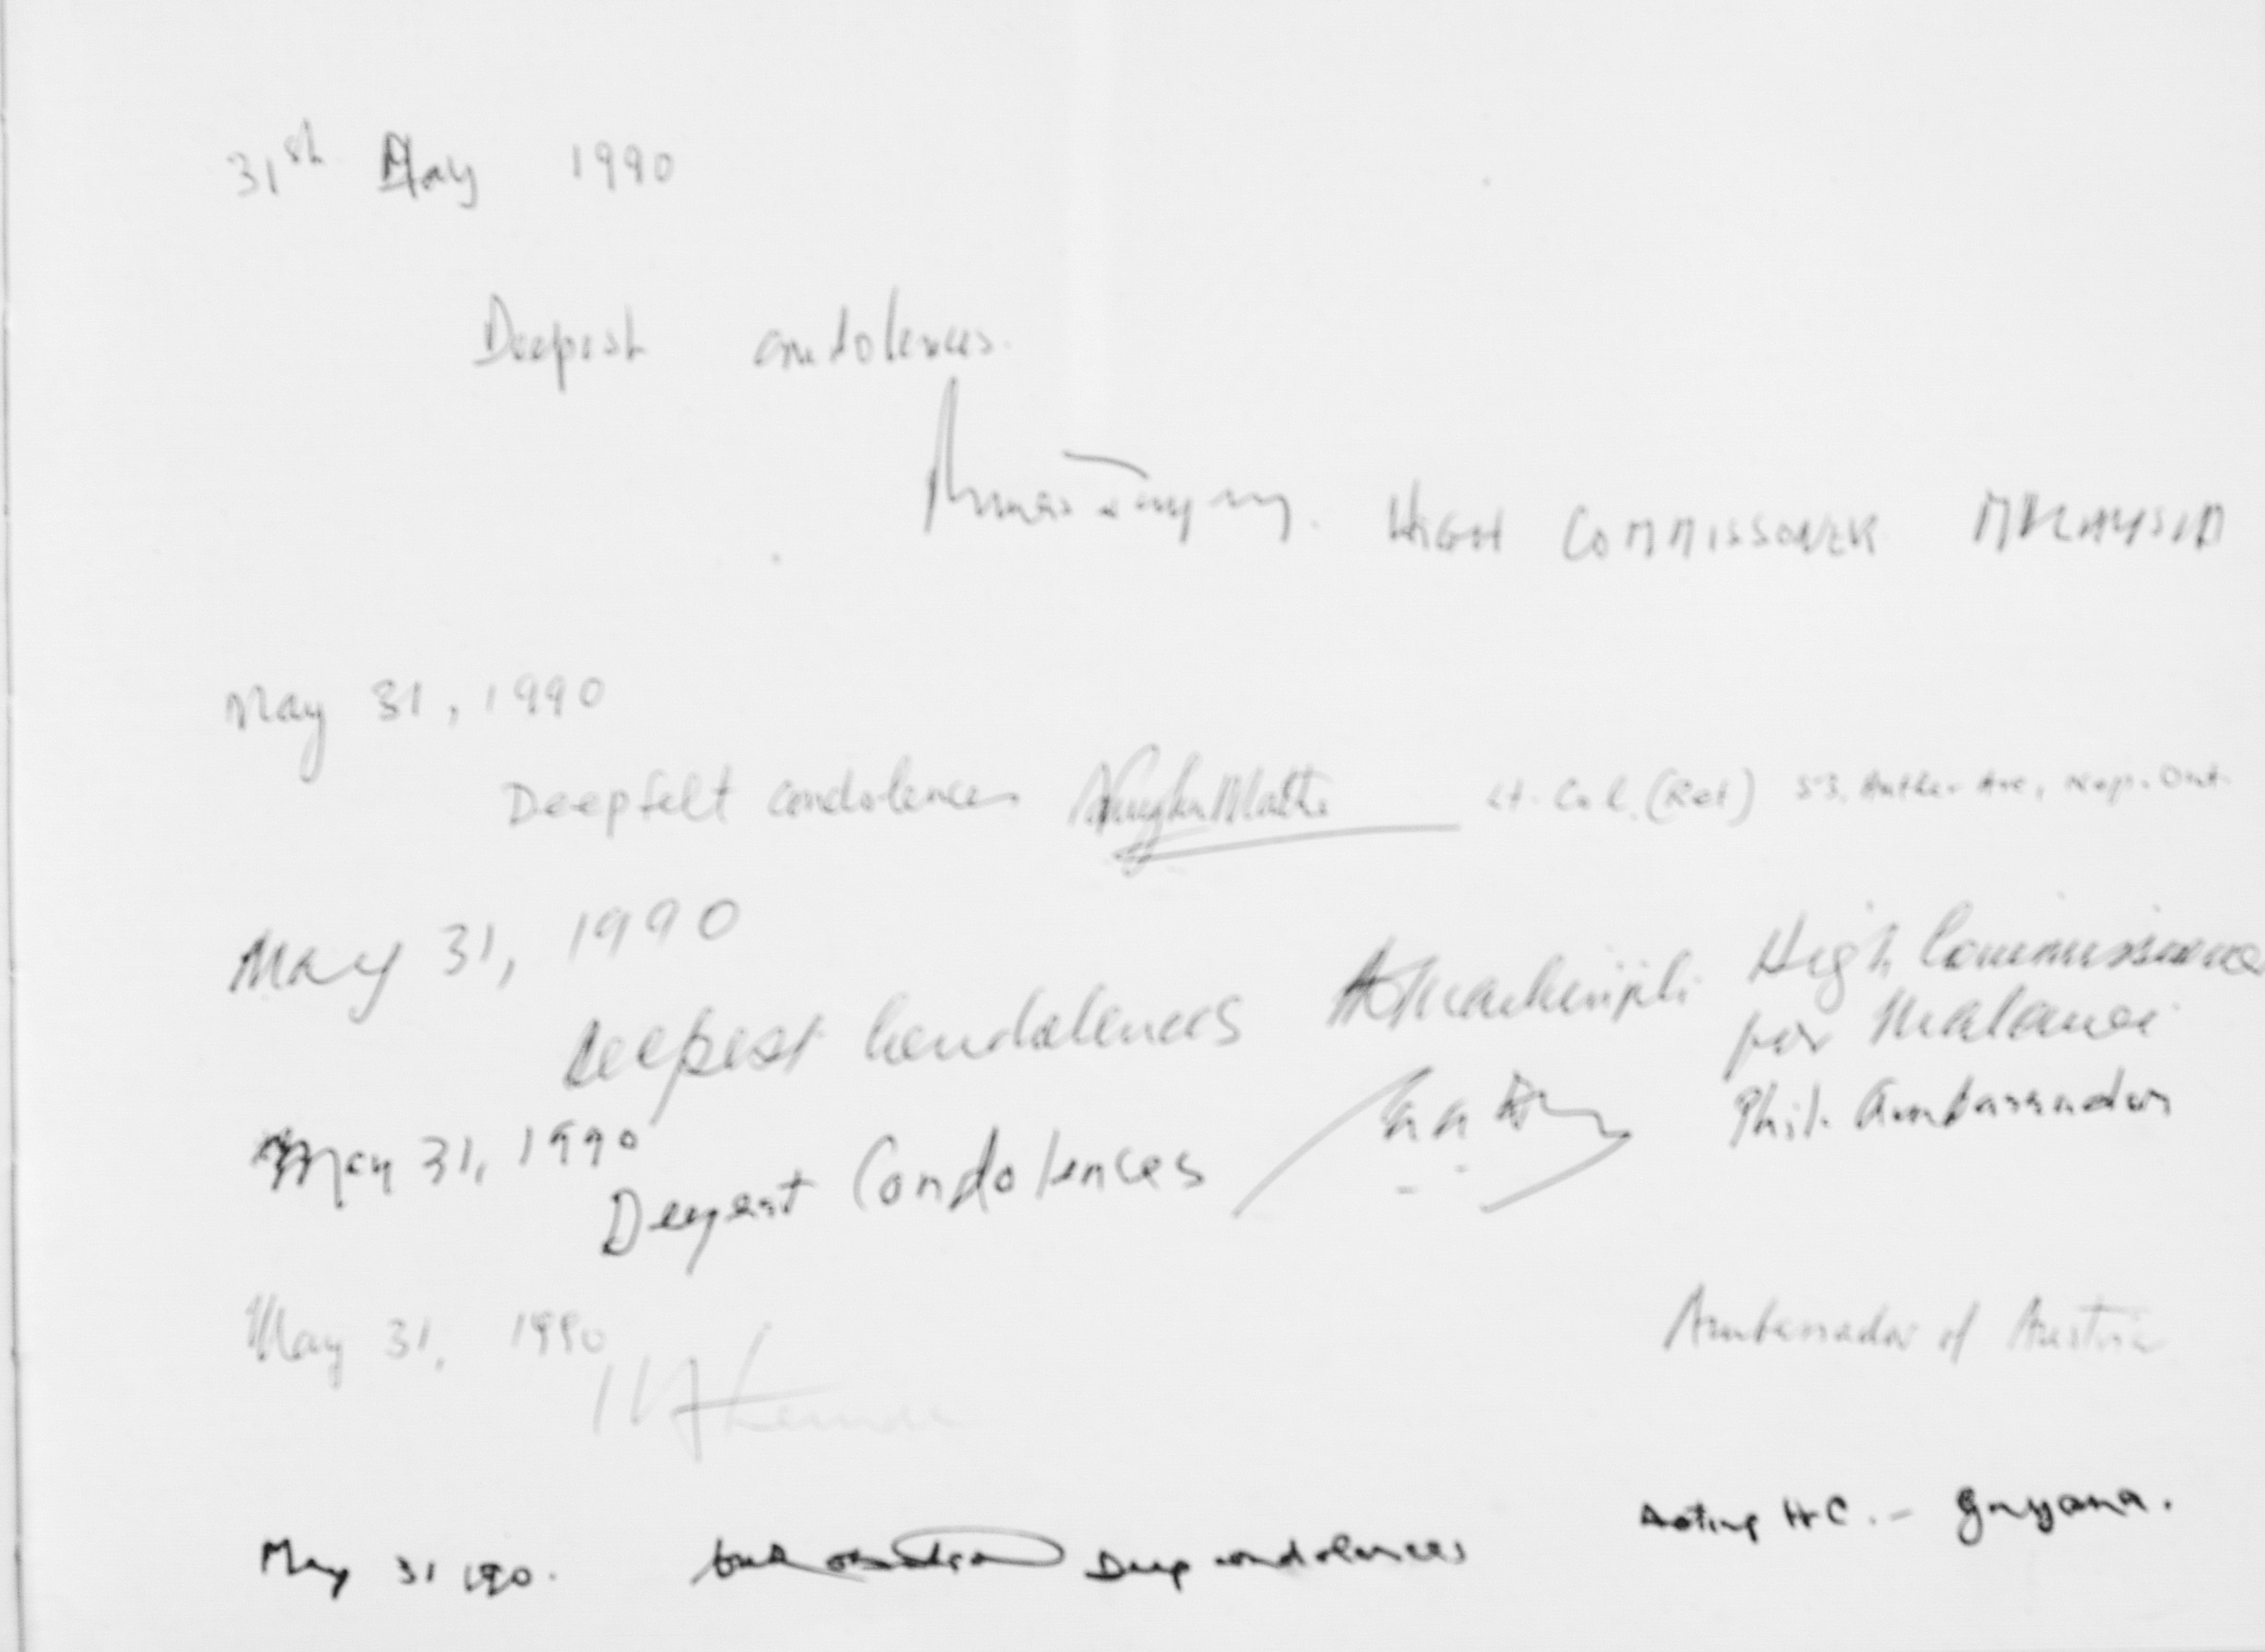 31st May 1990
Deepest condolences.
HIGH COMMISSONER MALAYSIA
May 31, 1990
Deepfelt condolences Lt. Col. (Ret) 53, Ave, Nep. Ont.
May 31, 1990
Deepest Condolences High Commissioner
for Malawi
May 31, 1990 Phil. Ambassador
Deepest Condolences
May 31, 1990 Ambassador of Austria
May 31 190. Deep condolences Acting HC. - Guyana.